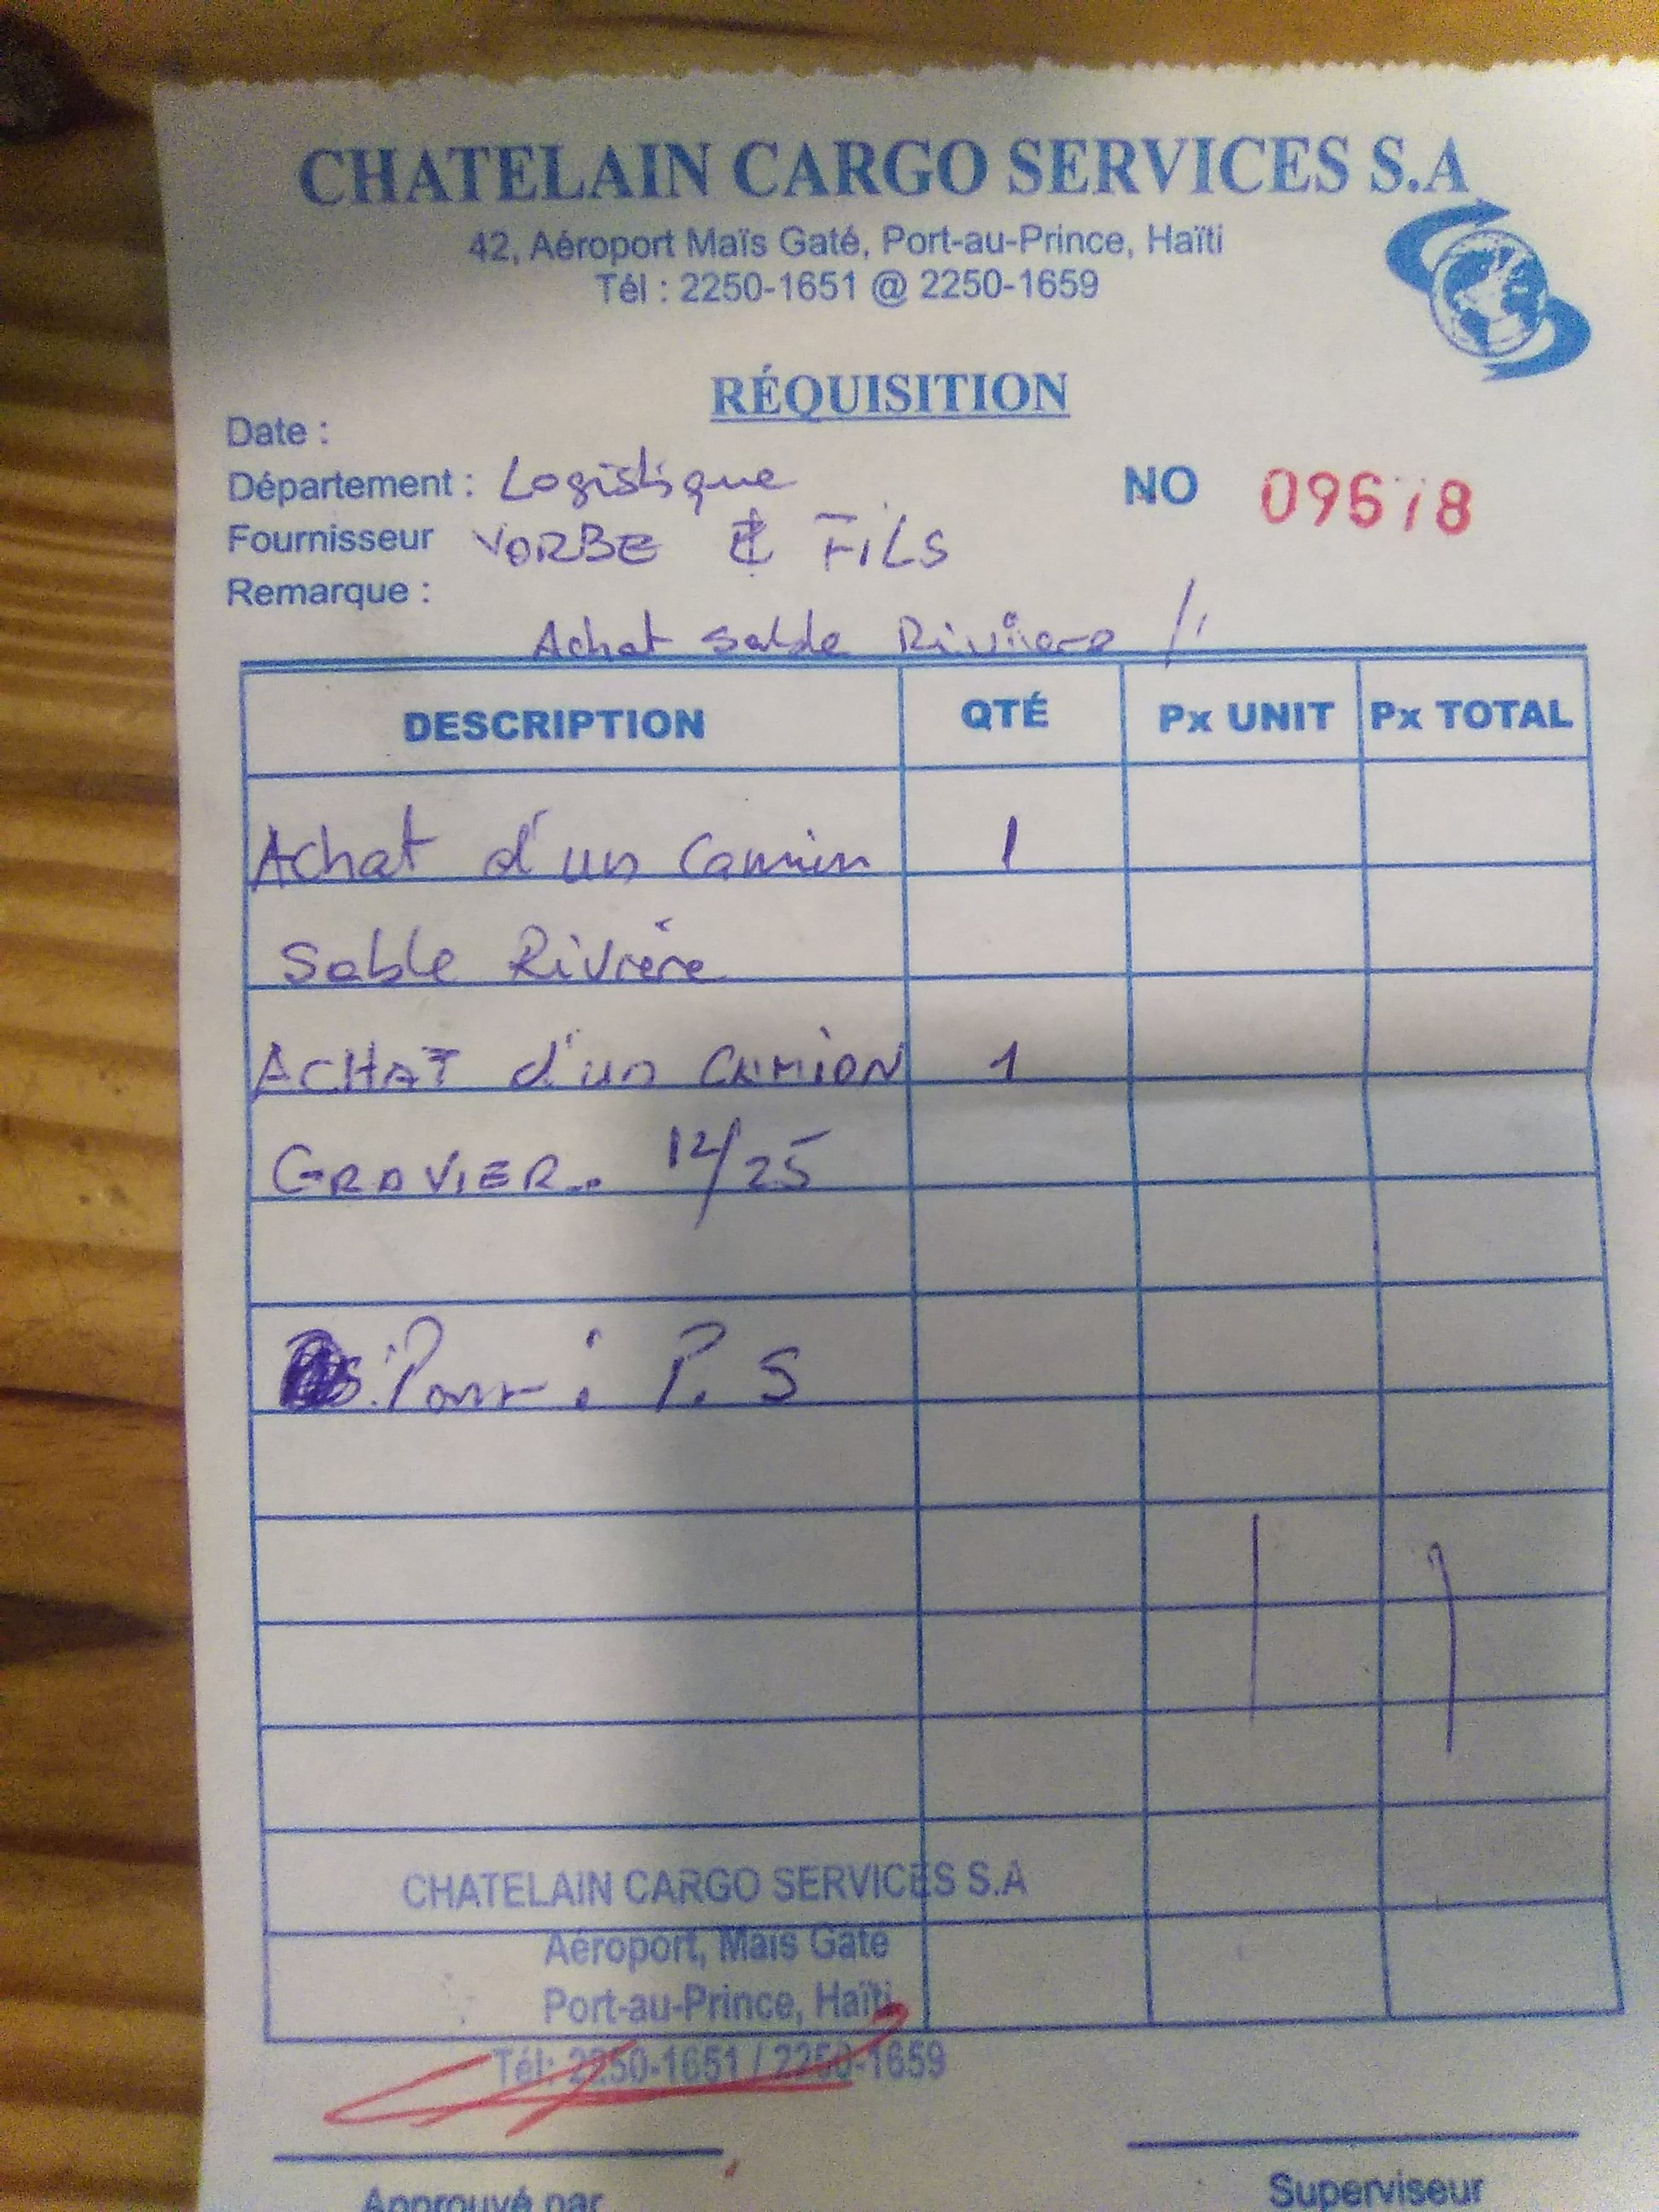 CHATELAIN CARGO SERVICES S.A
42, Aéroport Maïs Gaté, Port-au-Prince, Haïti
Tél : 2250-1651 @ 2250-1659
RÉQUISITION
Date :
Département : Logistique
NO
Fournisseur VORBE Et FiLS
Remarque :
Achat sable Riviere //
DESCRIPTION QTÉ Px UNIT Px TOTAL
Achat d'un Camion 1
Sable Rivière
ACHAT d'un CAMiON 1
GRAVIER 12/25
Pour : P. S
CHATELAIN CARGO SERVICES S.A
Aéroport, Maïs Gaté
Port-au-Prince, Haïti
Tél: 2250-1651 / 2250-1659
Approuvé par
Superviseur